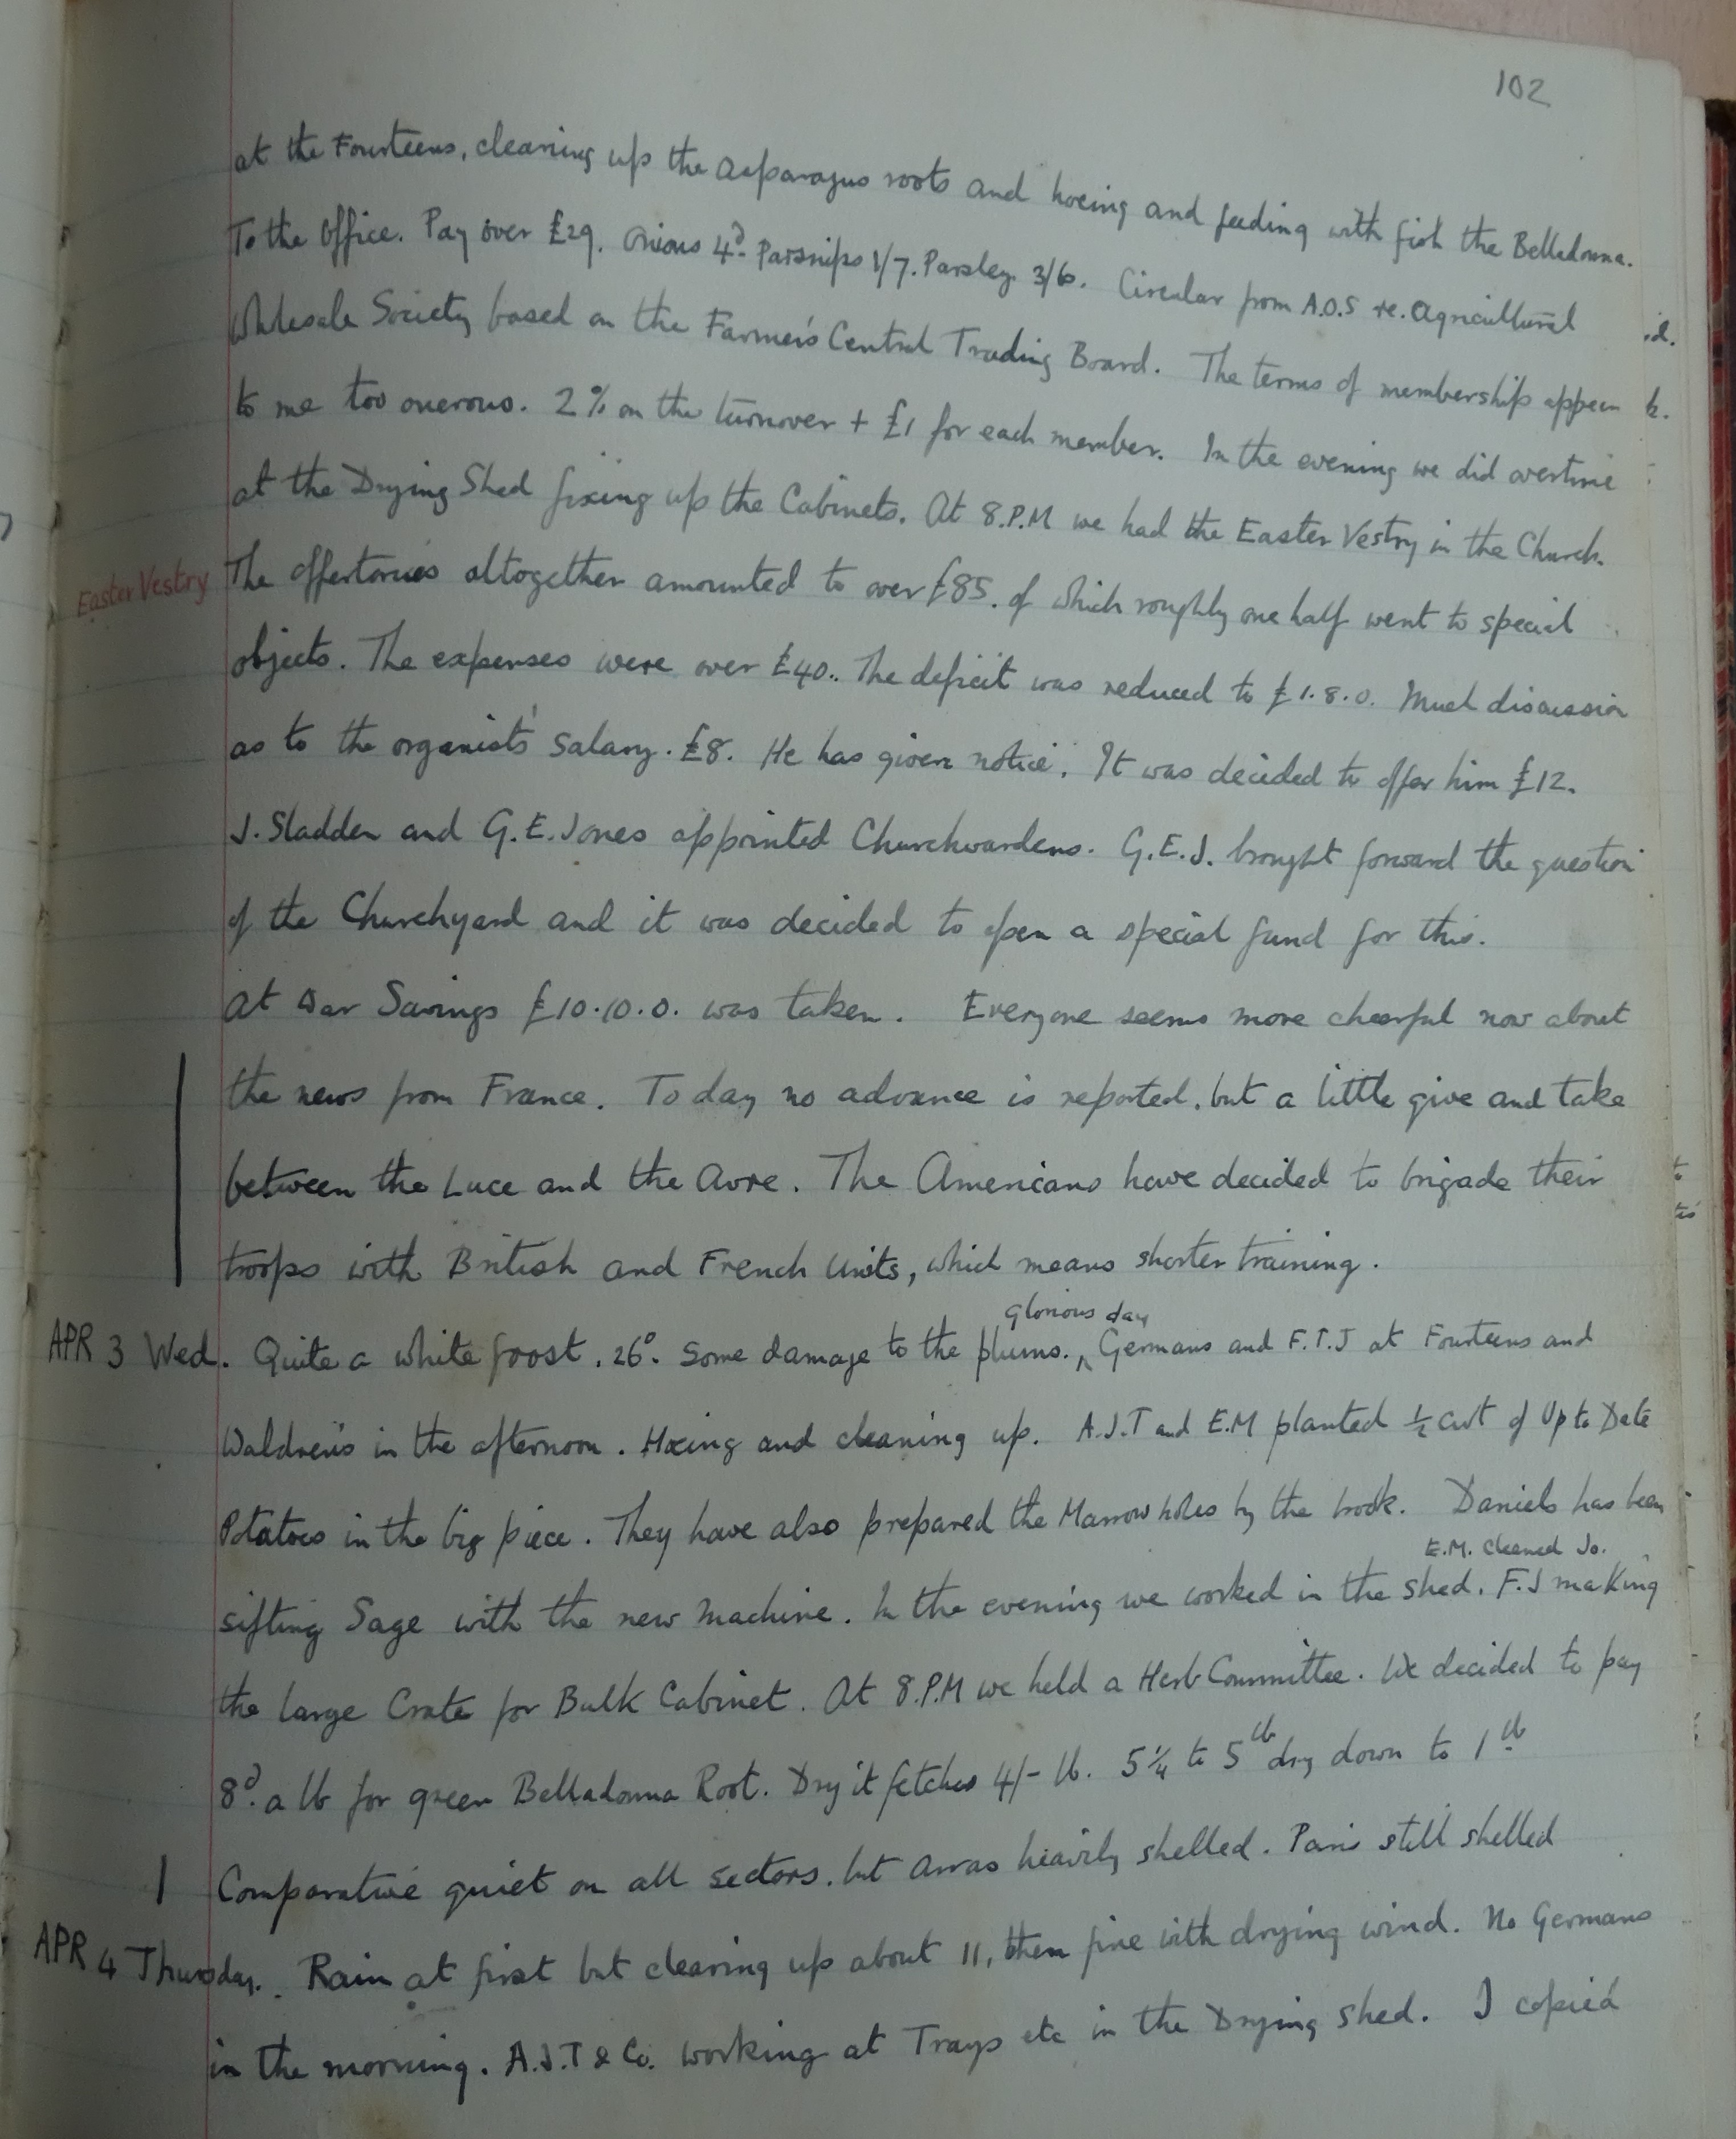 102
at the Fourteens, cleaning up the Asparagus roots and hoeing and feeding with fish the Belladonna.
To the Office. Pay over £29. Onions 4d. Parsnips 1/7. Parsley 3/6. Circular from A.O.S re. Agricultural
Wholesale Society based on the Farmer's Central Trading Board. The terms of membership appear
to me too onerous. 2% on the turnover + £1 for each member. In the evening we did overtime
at the Drying Shed fixing up the Cabinets. At 8.P.M we had the Easter Vestry in the Church.
Easter Vestry The offertories altogether amounted to over £85. of which roughly one half went to special
objects. The expenses were over £40. The deficit was reduced to £1.8.0. Much discussion
as to the organist's salary. £8. He has given notice. It was decided to offer him £12.
J. Sladden and G.E. Jones appointed Churchwardens. G.E.J. brought forward the question
of the Churchyard and it was decided to open a special fund for this.
At War Savings £10.10.0. was taken. Everyone seems more cheerful now about
the news from France. Today no advance is reported, but a little give and take
between the Luce and the Avre. The Americans have decided to brigade their
troops with British and French Units, which means shorter training.
Glorious day
APR 3 Wed. Quite a white froost. 26°. Some damage to the plums. ^ Germans and F.T.J at Fourteens and
Waldren's in the afternoon. Hoeing and cleaning up. A.J.T and E.M planted ½ cwt of Up to Date
Potatoes in the big piece. They have also prepared the Marrow holes by the brook. Daniels has been
E.M. cleaned Jo.
sifting Sage with the new machine. In the evening we worked in the shed. F.J making
the large Crate for Bulk Cabinet. At 8.P.M we held a Herb Committee. We decided to pay
8d. a lb for green Belladonna Root. Dry it fetches 4/- lb. 5¼ to 5 lb dry down to 1 lb
Comparative quiet on all sectors, but Arras heavily shelled. Paris still shelled
APR 4 Thursday. Rain at first but clearing up about 11, then fine with drying wind. No Germans
in the morning. A.J.T & Co. working at Trays etc in the Drying shed. I copied